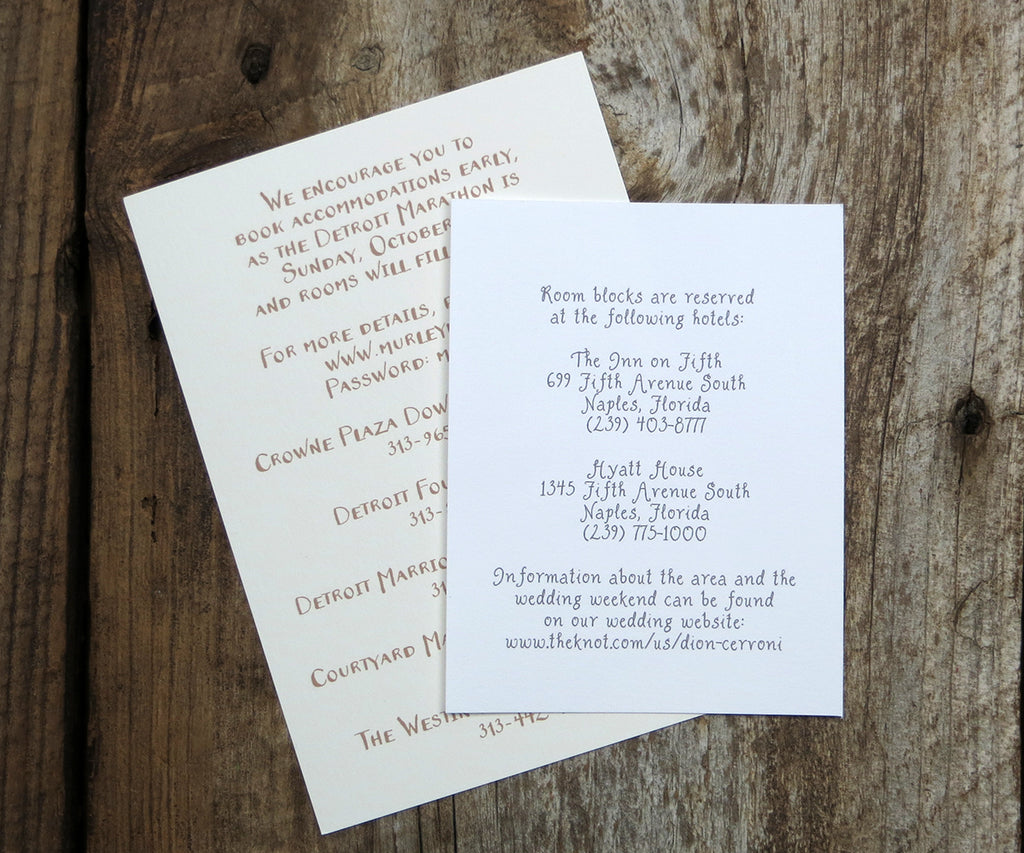 WE ENCOURAGE YOU TO
BOOK ACCOMMODATIONS EARLY,
AS THE DETROIT MARATHON IS
SUNDAY, OCTOBER
AND ROOMS WILL FILL
FOR MORE DETAILS,
WWW.MURLEY
PASSWORD:
CROWNE PLAZA DOW
313-965
DETROIT FOU
313-
DETROIT MARRIO
31
COURTYARD MA
THE WESTIN
313-442
Room blocks are reserved
at the following hotels:
The Inn on Fifth
699 Fifth Avenue South
Naples, Florida
(239) 403-8777
Hyatt House
1345 Fifth Avenue South
Naples, Florida
(239) 775-1000
Information about the area and the
wedding weekend can be found
on our wedding website:
www.theknot.com/us/dion-cerroni